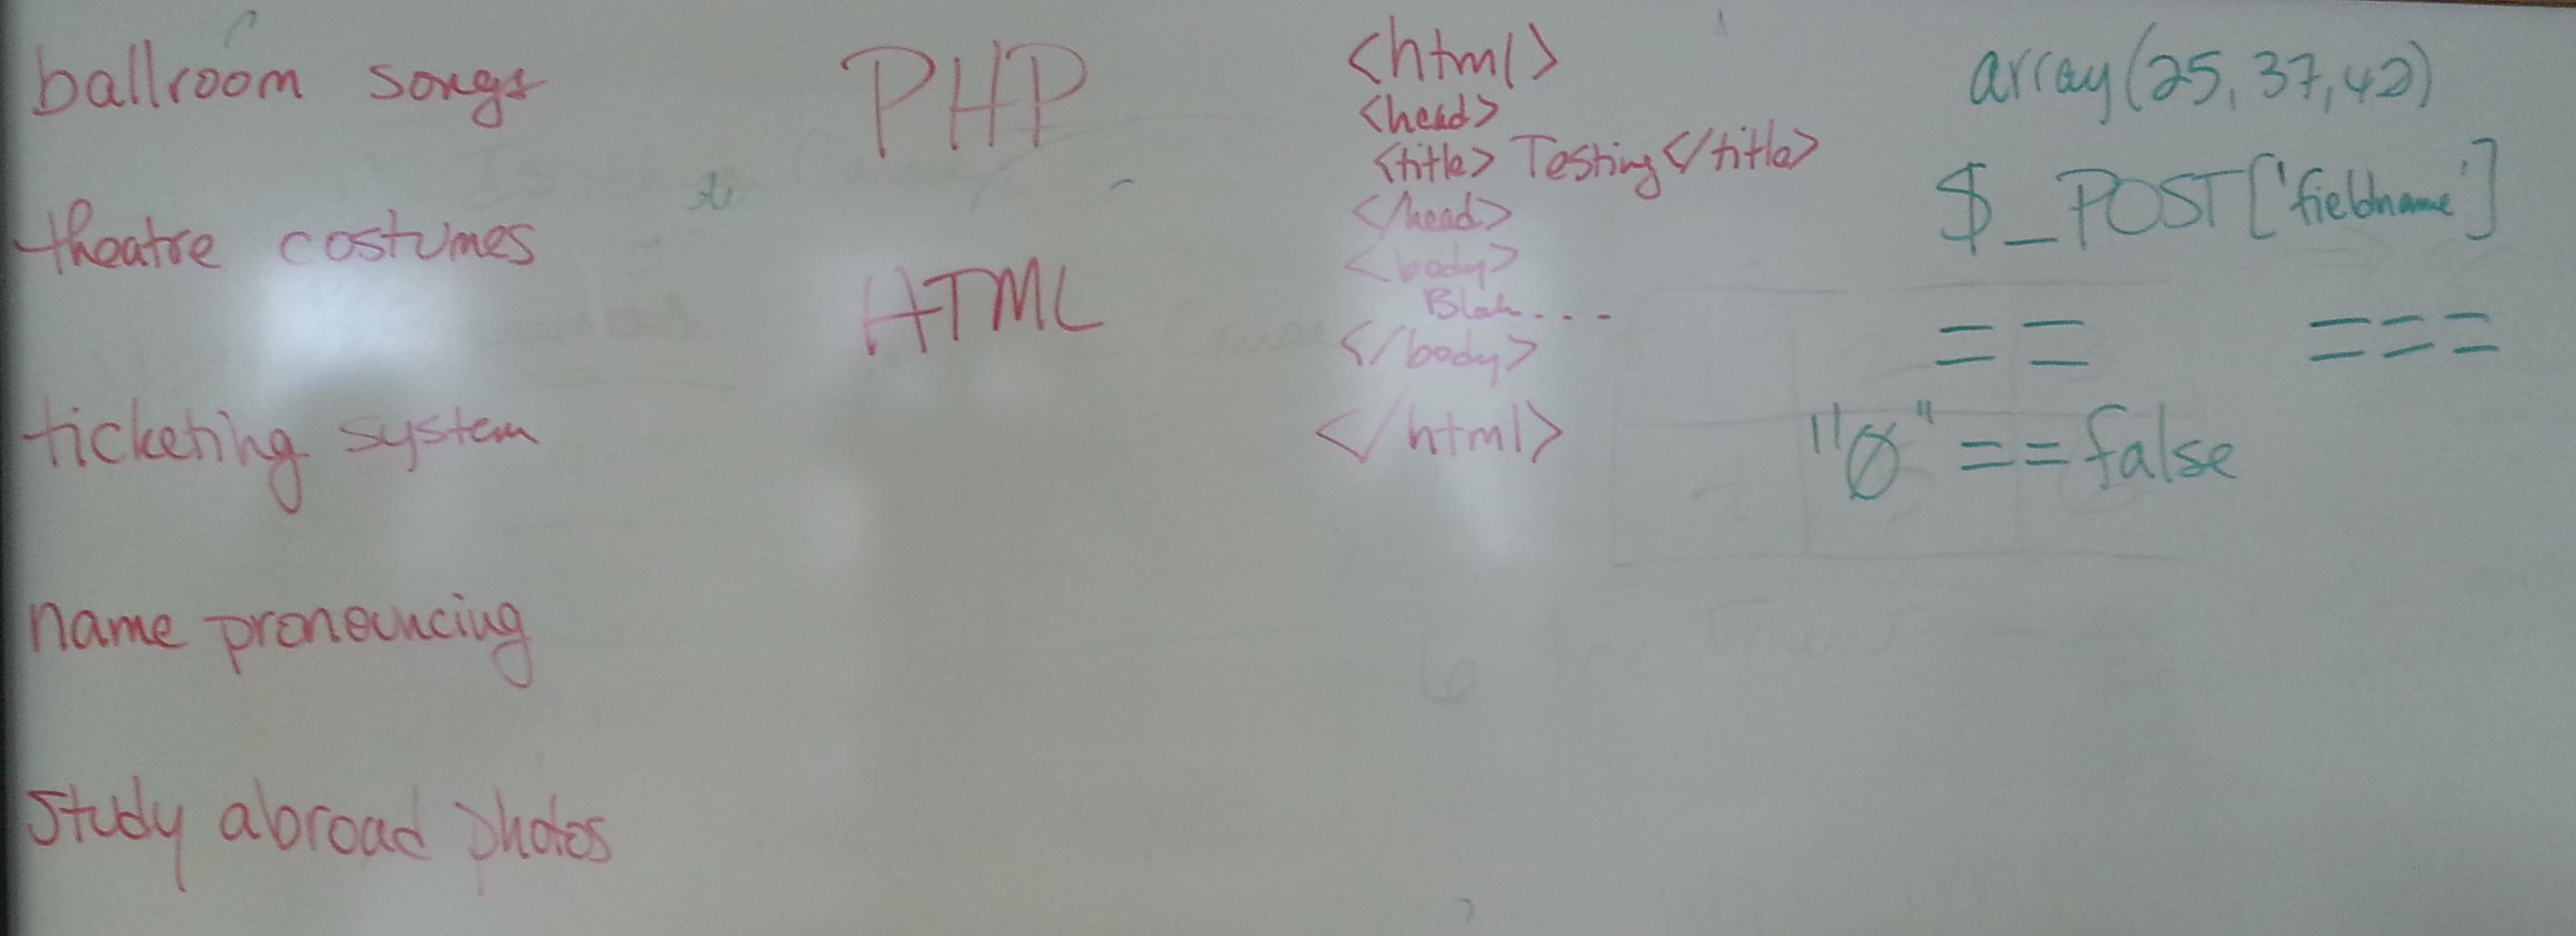 ballroom songs
theatre costumes
ticketing system
name pronouncing
study abroad photos
PHP
HTML
<html>
<head>
<title> Testing </title>
</head>
<body>
Blah....
</body>
</html>
array(25, 37, 42)
$_POST['fieldname']
== ===
"0" == false